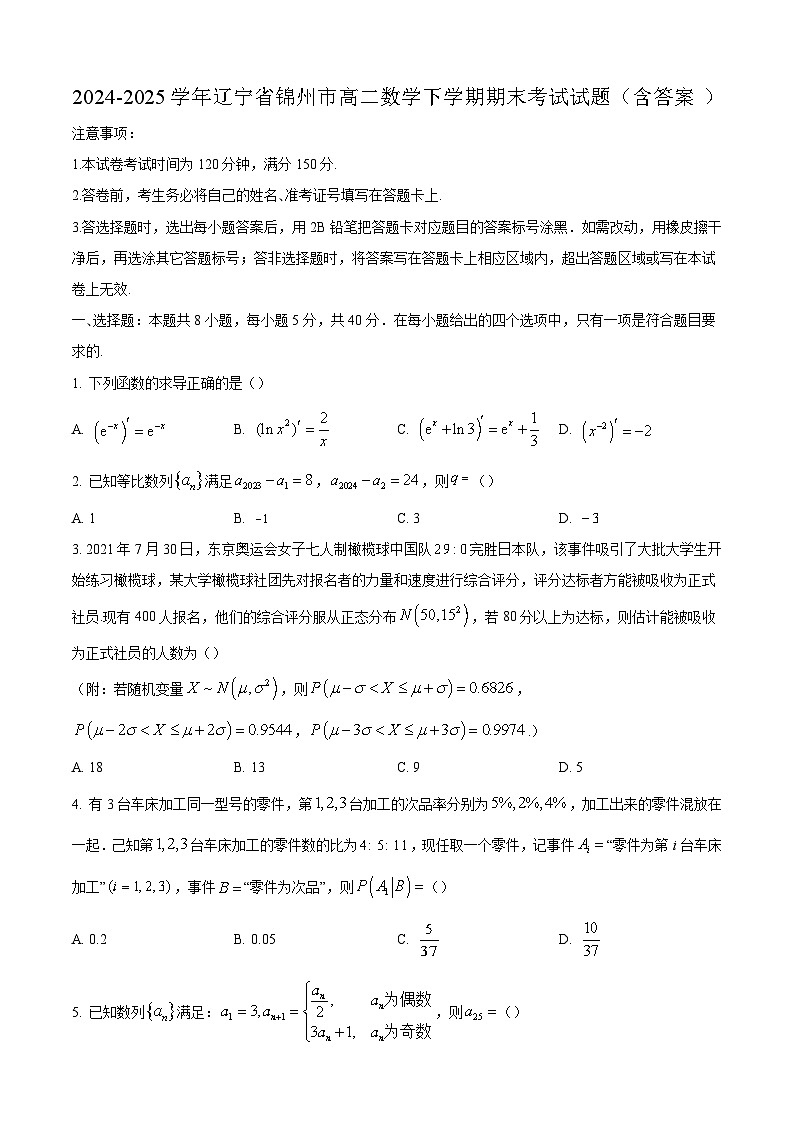 2024-2025学年辽宁省锦州市高二数学下学期期末考试试题（含答案 ）
注意事项：
1.本试卷考试时间为120分钟，满分150分.
2.答卷前，考生务必将自己的姓名、准考证号填写在答题卡上.
3.答选择题时，选出每小题答案后，用2B铅笔把答题卡对应题目的答案标号涂黑．如需改动，用橡皮擦干
净后，再选涂其它答题标号；答非选择题时，将答案写在答题卡上相应区域内，超出答题区域或写在本试
卷上无效.
一、选择题：本题共8小题，每小题5分，共40分．在每小题给出的四个选项中，只有一项是符合题目要
求的.
1. 下列函数的求导正确的是（）
A. (e^{-x})′ = e^{-x} B. (ln x²)′ = 2/x C. (e^x + ln 3)′ = e^x + 1/3 D. (x^{-2})′ = −2
2. 已知等比数列{a_n}满足a_{2023} − a_1 = 8，a_{2024} − a_2 = 24，则q =（）
A. 1 B. −1 C. 3 D. −3
3. 2021年7月30日，东京奥运会女子七人制橄榄球中国队29:0完胜日本队，该事件吸引了大批大学生开
始练习橄榄球，某大学橄榄球社团先对报名者的力量和速度进行综合评分，评分达标者方能被吸收为正式
社员.现有400人报名，他们的综合评分服从正态分布N(50,15²)，若80分以上为达标，则估计能被吸收
为正式社员的人数为（）
（附：若随机变量X ~ N(μ,σ²)，则P(μ−σ < X ≤ μ+σ) = 0.6826，
P(μ−2σ < X ≤ μ+2σ) = 0.9544，P(μ−3σ < X ≤ μ+3σ) = 0.9974.）
A. 18 B. 13 C. 9 D. 5
4. 有3台车床加工同一型号的零件，第1,2,3台加工的次品率分别为5%,2%,4%，加工出来的零件混放在
一起．己知第1,2,3台车床加工的零件数的比为4: 5: 11，现任取一个零件，记事件A_i =“零件为第i台车床
加工”(i = 1,2,3)，事件B =“零件为次品”，则P(A_1|B) =（）
A. 0.2 B. 0.05 C. 5/37 D. 10/37
5. 已知数列{a_n}满足：a_1 = 3, a_{n+1} = { a_n/2, a_n为偶数; 3a_n + 1, a_n为奇数，则a_{25} =（）